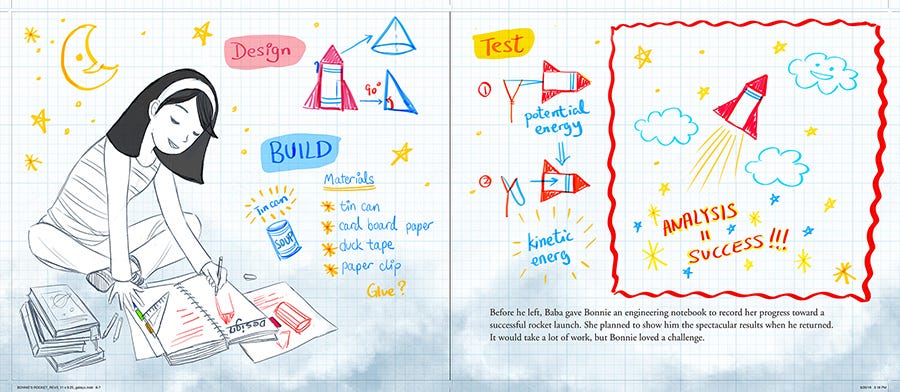 Design
90°
BUILD
Materials
Tin can
SOUP
tin can
card board paper
duck tape
paper clip
Glue?
Design
Test
①
potential
energy
②
kinetic
energ
ANALYSIS
=
SUCCESS!!!
Before he left, Baba gave Bonnie an engineering notebook to record her progress toward a
successful rocket launch. She planned to show him the spectacular results when he returned.
It would take a lot of work, but Bonnie loved a challenge.